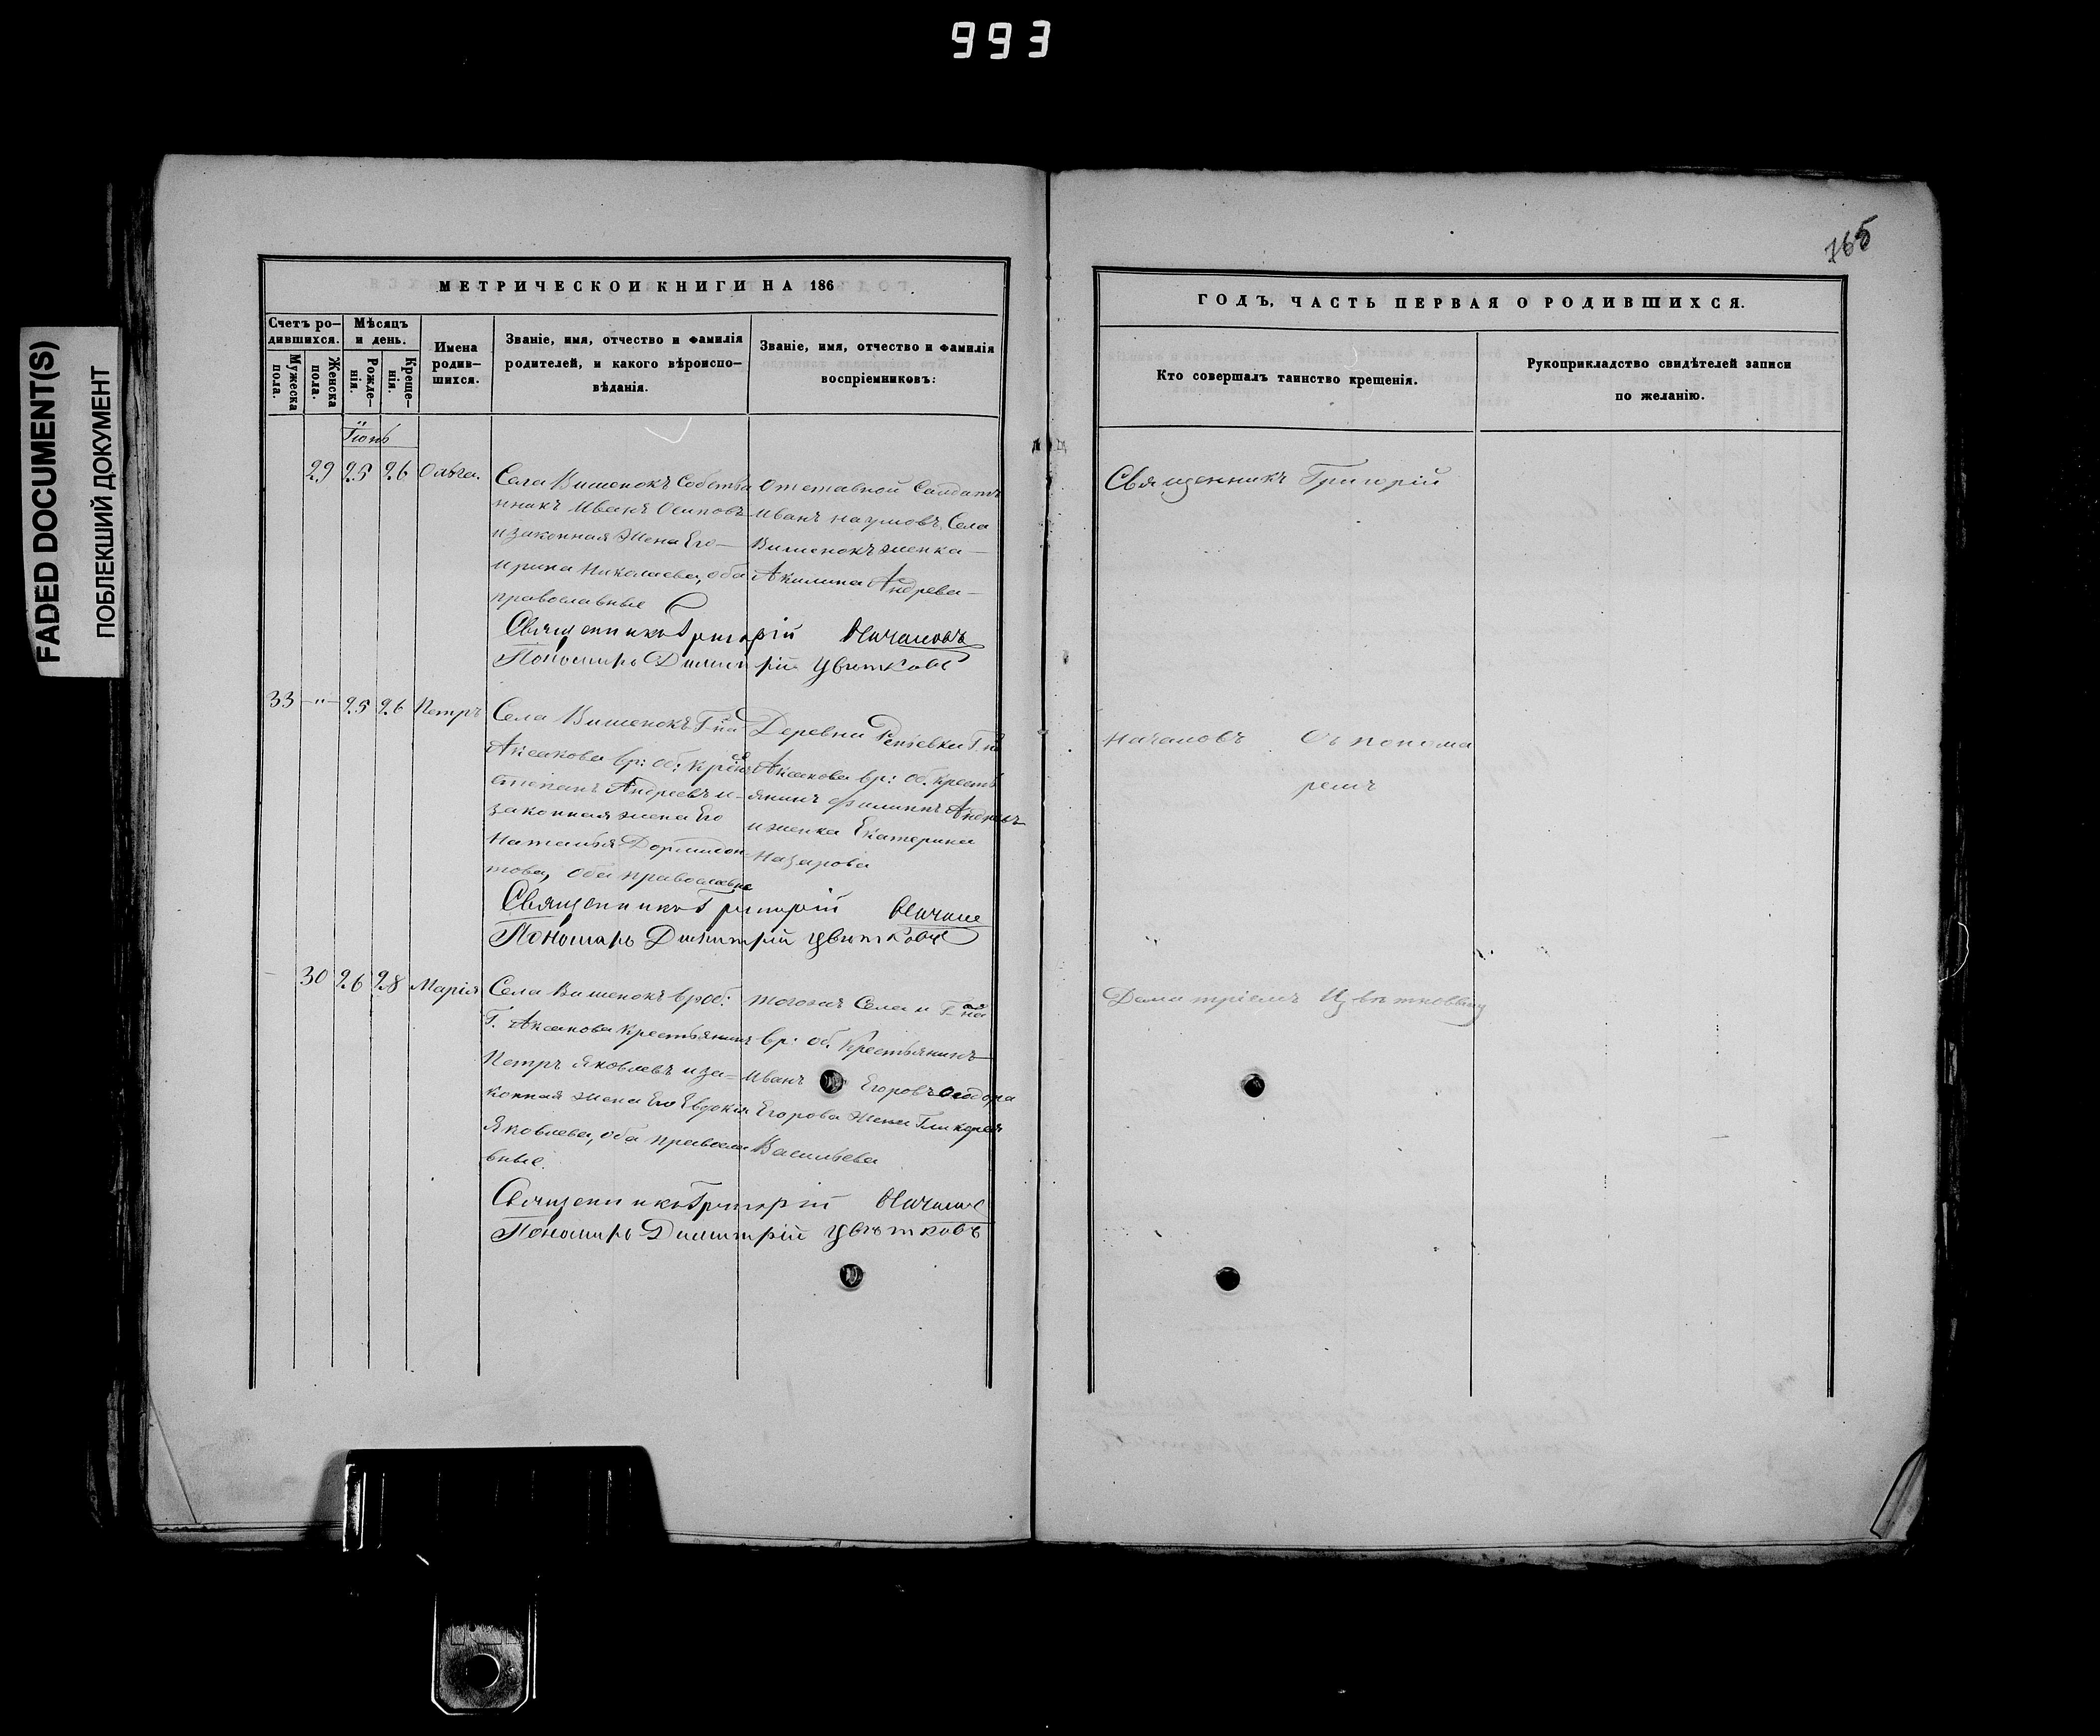 993
FADED DOCUMENT(S)
ПОБЛЕКШИЙ ДОКУМЕНТ
165
МЕТРИЧЕСКОЙ КНИГИ НА 186
Счетъ ро-
дившихся.
Мужеска
пола.
Женска
пола.
Мѣсяцъ
и день.
Рожде-
нія.
Креще-
нія.
Имена
родив-
шихся.
Званіе, имя, отчество и фамилія
родителей, и какого вѣроиспо-
вѣданія.
Званіе, имя, отчество и фамилія
воспріемниковъ:
Іюнь
29 25 26 Ольга.
Села Вишенокъ Собствен
никъ Иванъ Осиповъ
и законная Жена Его
Ирина Николаева, оба
православные
Отставной Солдатъ
Иванъ Наумовъ, Села
Вишенокъ женка
Акилина Андрева
Священникъ Григорій Началовъ
Пономарь Димитрій Цвѣтковъ
33 25 26 Петръ
Села Вишенокъ Г-на
Аксакова вр: об: Крес
Степанъ Андреевъ и
законная жена Его
Наталья Дормидон
това, оба православные
Деревни Г-на
Аксакова вр: об. Кресть
янинъ Филиппъ Андреевъ
и женка Екатерина
Назарова
Священникъ Григорій Началов
Пономарь Димитрій Цвѣтковъ
30 26 28 Марія
Села Вишенокъ вр об:
Г. Аксакова Крестьянинъ
Петръ Яковлевъ и за-
конная жена Его Евдокія
Яковлева, оба правосла
вные.
тогожъ Села и Г-на
вр: об. Крестьянинъ
Иванъ Егоровъ Ѳеодора
Егорова Жена Гликерія
Васильева
Священникъ Григорій Началов
Пономарь Димитрій Цвѣтковъ
ГОДЪ, ЧАСТЬ ПЕРВАЯ О РОДИВШИХСЯ.
Кто совершалъ таинство крещенія.
Рукоприкладство свидѣтелей записи
по желанію.
Священникъ Григорій
Началовъ Съ понома
ремъ
Димитріемъ Цвѣтковымъ